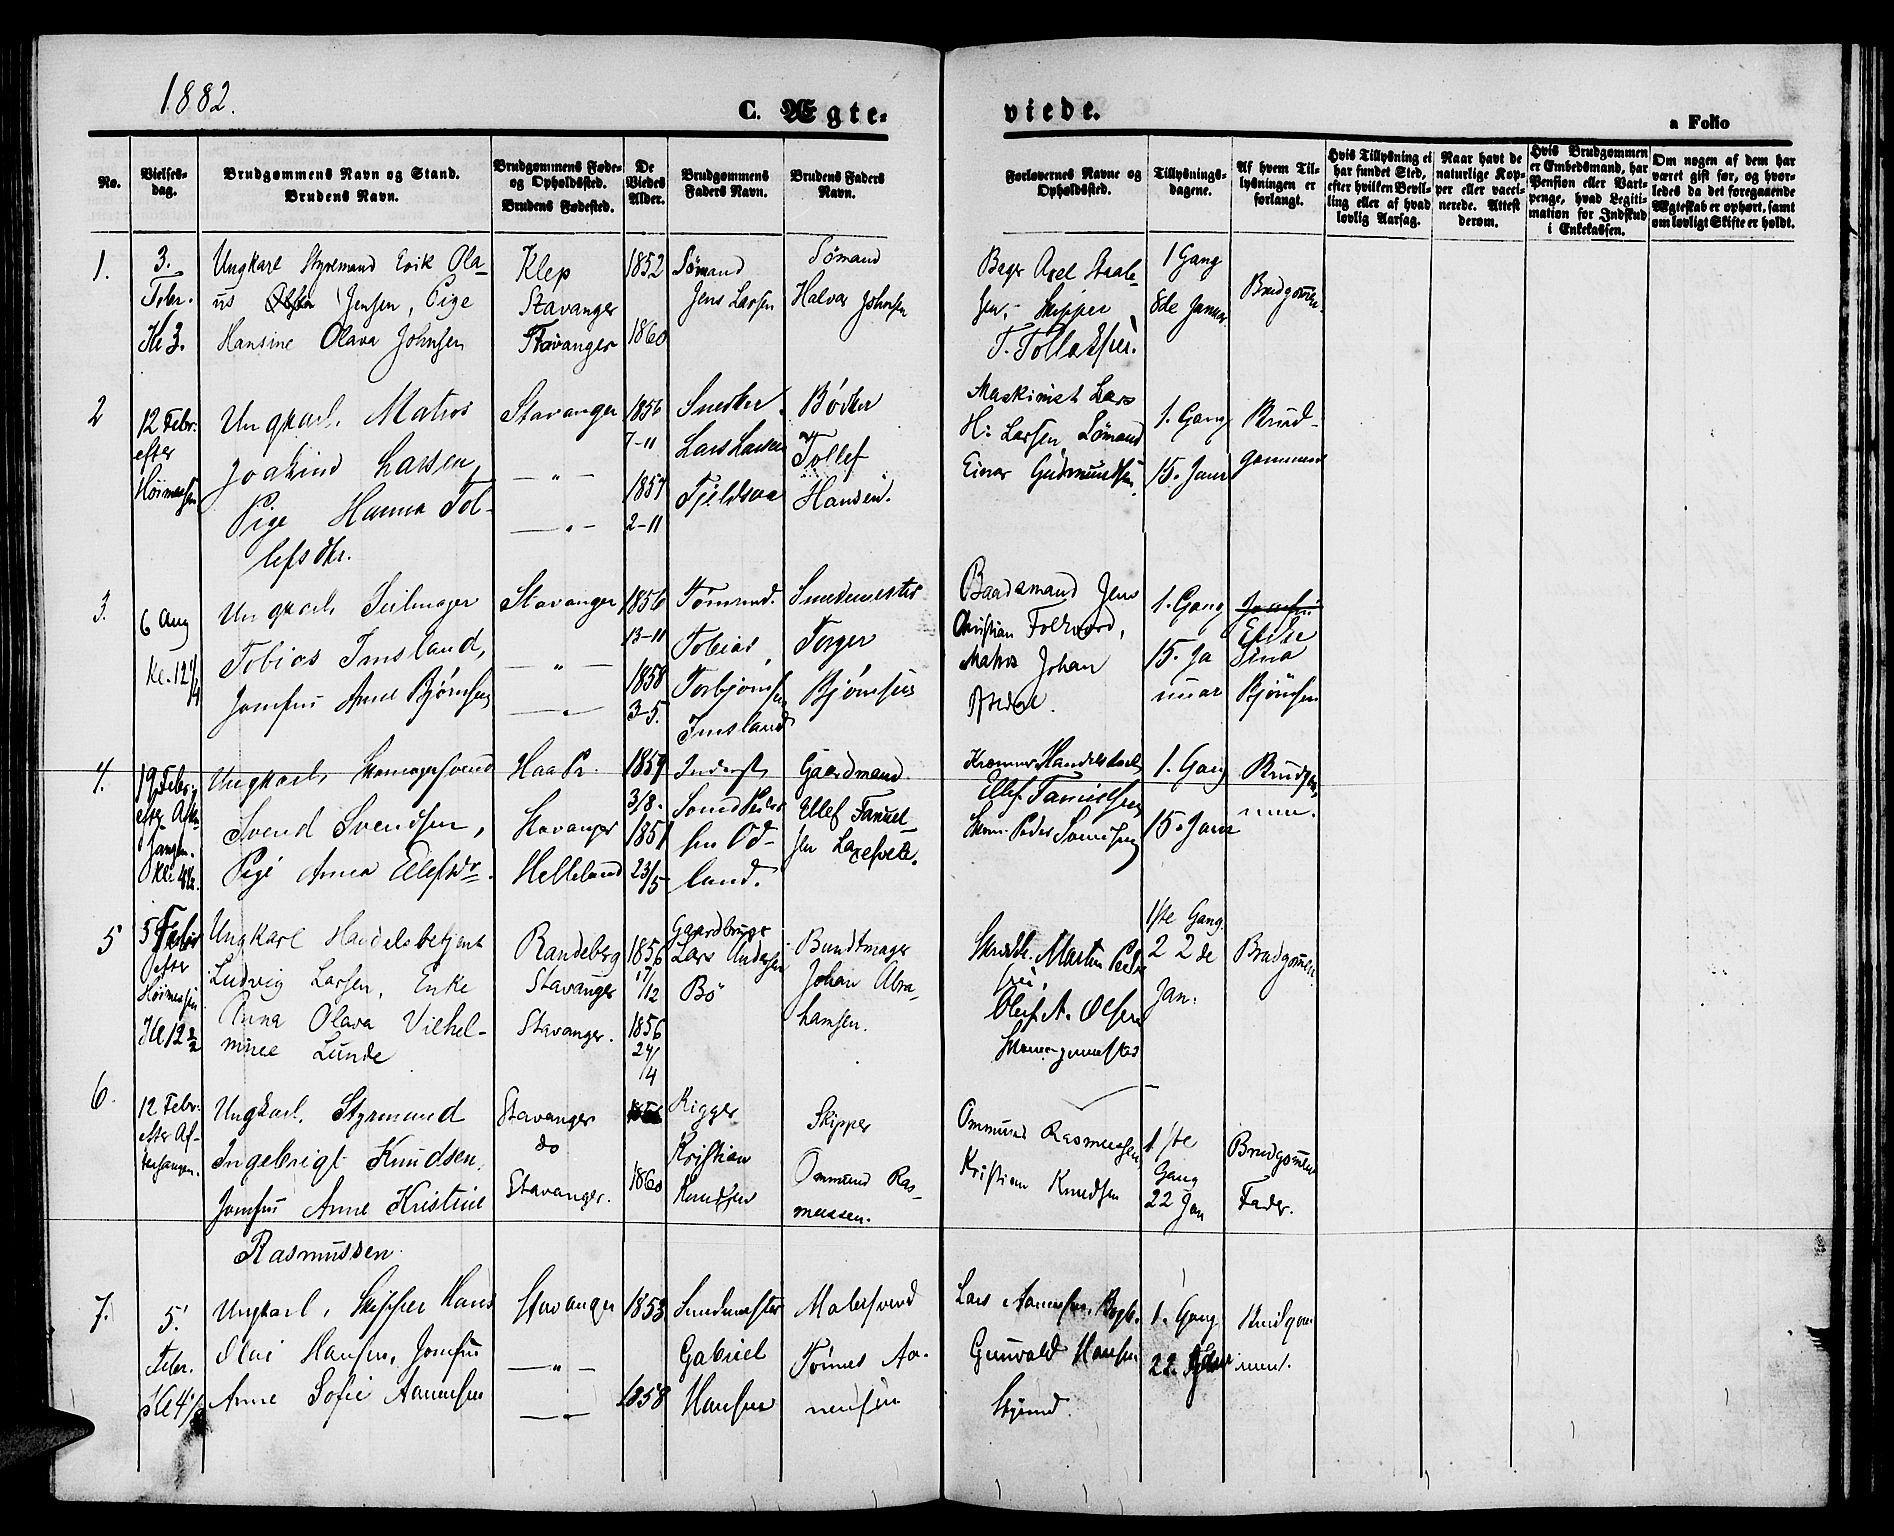 1882.
C. Ægte-
viede.
a Folio
No.
Vielses-
dag.
Brudgommens Navn og Stand.
Brudens Navn.
Brudgommens Føde-
og Opholdssted.
Brudens Fødested.
De
Viedes
Alder.
Brudgommens
Faders Navn.
Brudens Faders
Navn.
Forlovernes Navne og
Opholdssted.
Tillysnings-
dagene.
Af hvem Til-
lysningen er
forlangt.
Hvis Tillysning ei
har fundet Sted,
efter hvilken Bevil-
ling eller af hvad
lovlig Aarsag.
Naar havt de
naturlige Kop-
per eller vacci-
nerede. Attest
derom.
Hvis Brudgommen
er Embedsmand, har
Pension eller Vart-
penge, hvad Legiti-
mation for Indskud
i Enkekassen.
Om nogen af dem har
været gift før, og hvor-
ledes da det foregaaende
Ægteskab er ophørt, samt
om lovligt Skifte er holdt.
1.
3.
Febr.
Kl 3.
Ungkarl Styremand Erik Ola-
us Jensen, Pige
Hansine Olava Johnsen
Klep
Stavanger
Stavanger
1852
1860
Sømand
Jens Larsen
Sømand
Halvor Johnsen
Bager Axel Staale-
sen, Skipper
T. Tollaksen.
1 Gang
8de Januar
Brudgommen.
2
12 Febr.
efter
Høimessen
Ungkarl, Matros
Joakind Larsen,
Pige Hanna Tol-
lefsdtr.
Stavanger
— " —
— " —
1856
7-11
1857
2-11
Snedker
Lars Larsen
Fjeldsaa
Bødker
Tollef
Hansen.
Maskinist Lars
H. Larsen Sømand
Einar Gudmundsen.
1. Gang
15. Janr
Brud-
gommen
3.
6 Aug
Kl. 12 1/4
Ungkarl, Seilmager
Tobias Imsland,
Jomfru Anne Bjørnsen
Stavanger
— " —
— " —
1856
13-11
1858
3-5.
Tømmd.
Tobias
Torbjørnsen
Imsland
Smedmester
Torger
Bjørnsen
Baadsmand Jens
Christian Folkvord,
Matros Johan
1. Gang
15. Ja
nuar
Enke
Sina
Bjørnsen
4.
19 Febr.
efter Aften-
sangen.
Kl. 4 1/2.
Ungkarl, Skomagersvend
Svend Svendsen,
Pige Anna Ellefsdr.
Haa Pr.
Stavanger
Helleland
1857
3/8.
1851
23/5
Inderst
Svend Peder-
sen Od-
land.
Gaardmand
Ellef Samuel-
sen Laxesvele.
Kræmmer Handelskarl
Ellef Samuelsen
Skom. Peder Svendsen
1. Gang
15. Janr
Brudgom
men.
5
5 Febr.
efter
Høimessen
Kl 12 1/2
Ungkarl Handelsbetjent
Ludvig Larsen, Enke
Anna Olava Vilhel-
mine Lunde
Randeberg
Stavanger
Stavanger.
1856
17/12
1856
24/4
Gaardbruger
Lars Andersen
Bø
Bundtmager
Johan Abra-
hamsen.
Skrædder Martin Peder-
sen,
Oluf A. Olsen
Skomagermester
1ste Gang
22de
Jan:
Brudgommen.
6.
12 Febr.
efter Af-
tensangen.
Ungkarl, Styrmand
Ingebrigt Knudsen,
Jomfru Anne Kristine
Rasmussen.
Stavanger
do
Stavanger.
1856
1860
Rigger
Kristian
Knudsen
Skipper
Ommund Ras-
mussen.
Ommund Rasmussen
Kristian Knudsen
1ste
Gang
22 Jan
Brudgommens
Fader.
7.
5.
Febr.
Kl 4 1/2
Ungkarl, Skipper Hans
Olai Hansen, Jomfru
Anne Sofie Aanensen
Stavanger
— " —
— " —
1853
1858
Smedmester
Gabriel
Hansen
Malersvend
Tønnes Aa-
nensen
Lars Aanensen, Bagb.
Gunvald Hansen
Styrmd.
1. Gang
22. Janr
Brudgom
men.